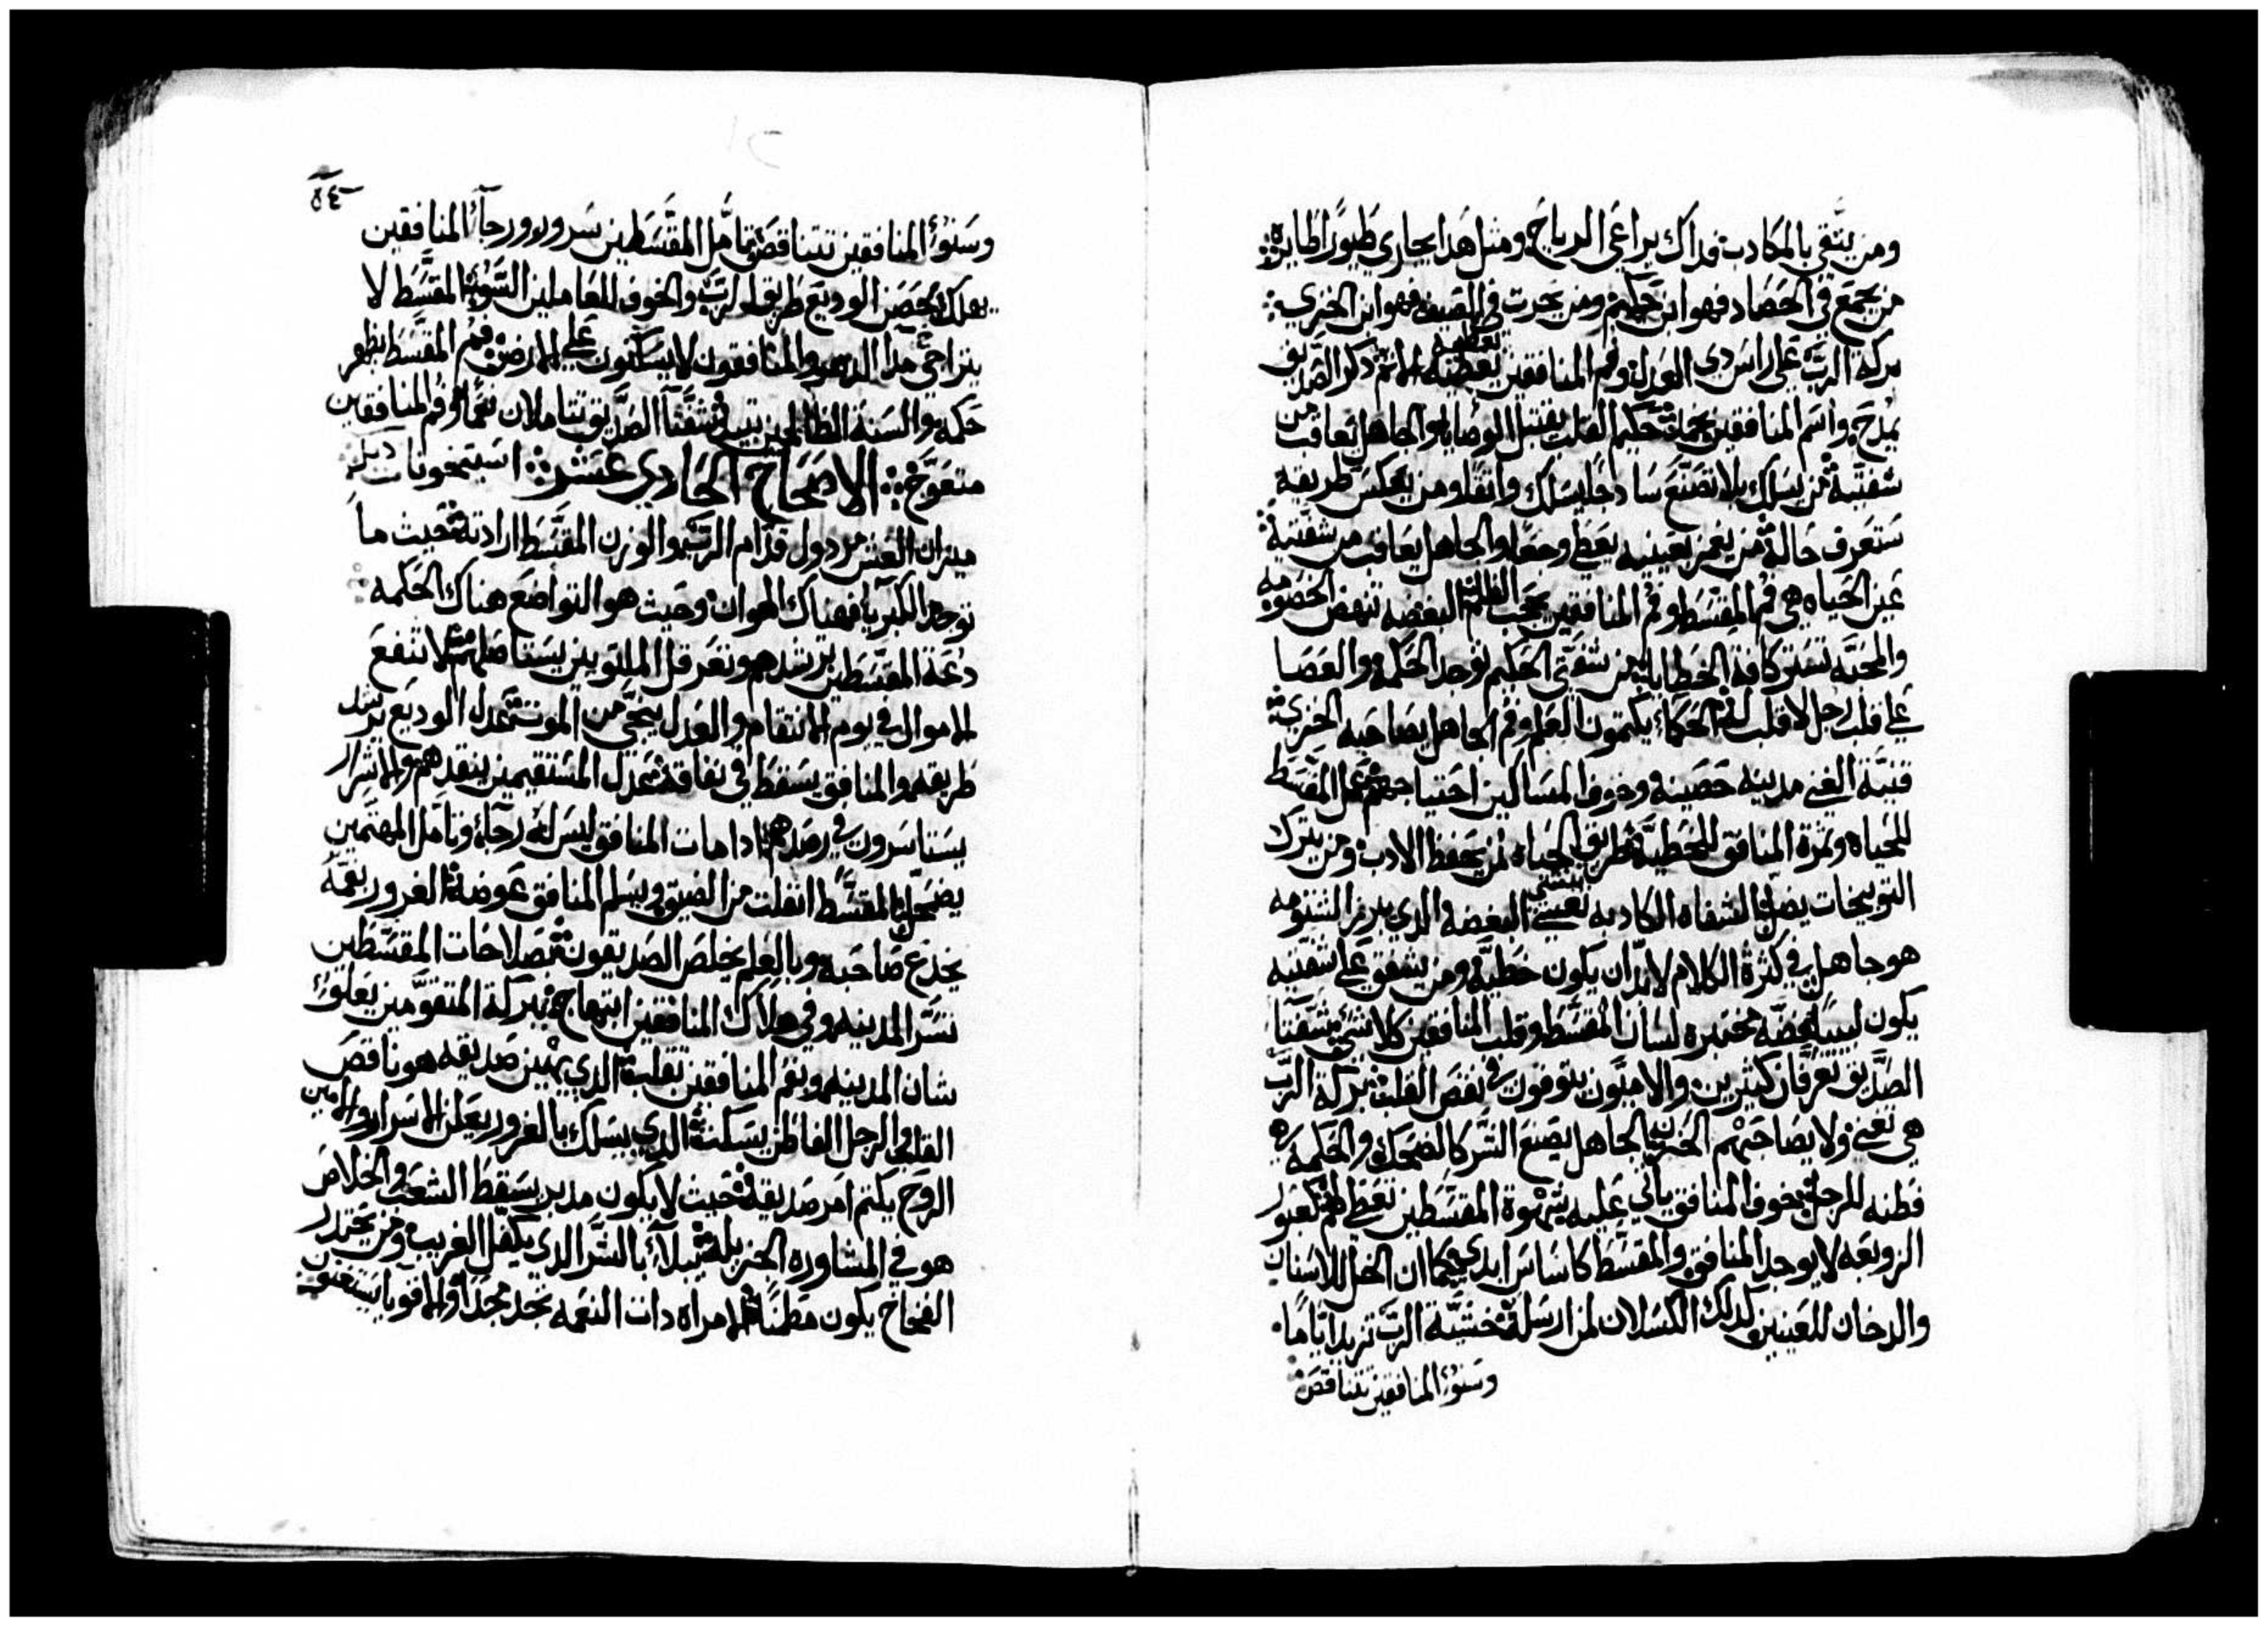 ومن يتقي بالمكادب فداك يراعي الرياح ومثل هدا يجاري طيورًا طايره
من يجمع في الحصاد فهو ابن حكيم ومن يحرت في الصيف فهو ابن الخزي
بركة الرب على راس دي العدل وفم المنافقين تغطيه الاتم دكر الصديق
بمدح واسم المنافقين حكيم القلب يقتبل الوصايا والجاهل يعاقب من
شفتيه من يسلك بلا تصنع سادجًا يسلك واتقًا ومن يعكس طريقه
ستعرف حالة من يغمز بعينيه يعطي وجعًا والجاهل يعاقب من شفتيه
عين الحياه هي فم المقسط وفم المنافقين يحجب الظلم البغضه تنهض الخصومه
والمحبه تستر كافة الخطايا من شفتي الحكيم توجد الحكمه والعصا
على قلب رجل لا قلب له الحكماء يكتمون العلم وفم الجاهل يصاحبه الخزي
قنية الغني مدينه حصينه وخوف المساكين احتياجهم عمل المقسط
للحياه وتمرة المنافق للخطيه طريق الحياه لمن يحفظ الادب ومن يترك
التوبيخات يضل الشفاه الكادبه تغشي البغضه الدي يبرز الشتومه
هو جاهل في كترة الكلام لابد ان يكون خطيه ومن يشفق على شفتيه
يكون لبيبا فضه مختبره لسان المقسط وقلب المنافقين كلا شي شفتا
الصديق تعرفان كتيرين والاميون يتوفون في نقص القلب بركة الرب
هي تغني ولا يصاحبهم الحزن الجاهل يصنع الشر كالضحك والحكمه
فطنه للرجل خوف المنافق ياتي عليه شهوة المقسطين تعطي لهم كعبور
الزوبعه لا يوجد المنافق والمقسط كاساس ابدي كما ان الخل للاسنان
والدخان للعينين كدلك الكسلان لمن ارسله خشية الرب تزيد ايامًا
وسنو المنافقين تتناقص
٥٤
وسنو المنافقين تتناقص تامل المقسطين سرور ورجاء المنافقين
يهلك حصن الوديع طريق الرب والخوف للعاملين السو المقسط لا
يتراخى مدا الدهر والمنافقون لا يسكنون على الارض فم المقسط يظهر
حكمه والسنة الظالمين تبيد شفتا الصديق تتاملان نعمًا وفم المنافقين
متعوج الاصحاح الحادي عشر
ميزان الغش مردول قدام الرب والوزن المقسط ارادته حيت ما
توجد الكبريا فهناك الهوان وحيت هو التواضع هناك الحكمه
دعة المقسطين ترشدهم وتعرقل الملتويين يستاصلهم لا تنفع
الاموال في يوم الانتقام والعدل ينجي من الموت عدل الوديع يرشد
طريقه والمنافق يسقط في نفاقه عدل المستقيمين ينقدهم والاشرار
يستاسرون في رصدهم ادا مات المنافق ليس له رجاء وتامل المهتمين
يضمحل المقسط انفلت من الضيق ويسلم المنافق عوضه الغرور بفمه
يخدع صاحبه وبالعلم يخلص الصديقون بصلاحات المقسطين
تسر المدينه وفي هلاك المنافقين ابتهاج ببركة المتقومين يعلو
شان المدينه وبفم المنافقين تنقلب الدي يهين صديقه هو ناقص
القلب والرجل الفاطن يسكت الدي يسلك بالغرور يعلن الاسرار والامين
الروح يكتم امر صديقه حيت لا يكون مدبر يسقط الشعب والخلاص
هو في المشاوره الجزيله يبتلا بالشر الدي يكفل الغريب ومن يحتدر
الفخاخ يكون مطمنًا الامراه دات النعمه تجد مجدًا والاقويا يستغنون